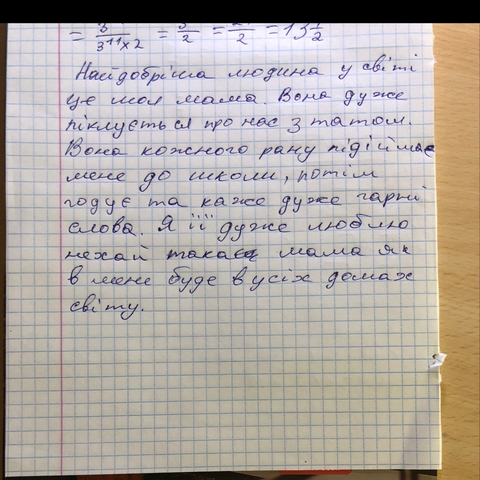 = 3 / 3¹¹×2 = 3 / 2 = 27 / 2 = 13 1/2
Найдобріша людина у світі
це моя мама. Вона дуже
піклується про нас з татом.
Вона кожного рану підіймає
мене до школи, потім
годує та каже дуже гарні
слова. Я її дуже люблю
нехай така мама як
в мене буде в усіх домах
світу.